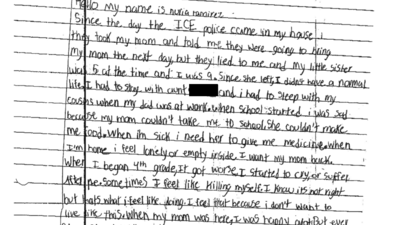 Hello my name is nuria ramirez.
Since the day the ICE police come in my house,
they took my mom and told me they were going to bring
my mom the next day but they lied to me and my little sister
was 5 at the time and I was 9. Since she left, I didn't have a normal
life. I had to stay with aunt and i had to sleep with my
cousins when my dad was at work. When school started i was sad
because my mom couldn't take me to school. She couldn't make
me food. When im sick i need her to give me medicine. When
I'm home i feel lonely or empty inside. I want my mom back.
When I began 4th grade, It got worse. I started to cry or suffer
Sometimes I feel like killing myself. I know its not right
but thats what i feel like doing. I feel that because i don't want to
live like this. When my mom was here, I was happy But ever